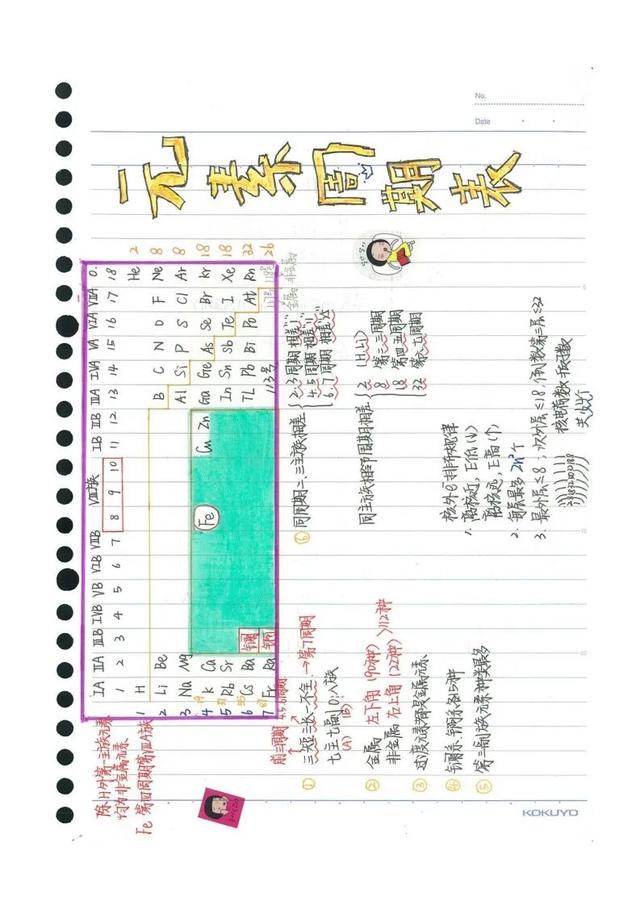 No.
Date
元素周期表
2 8 8 18 18 32 26
IA IIA IIIB IVB VB VIB VIIB VIII族 IB IIB IIIA IVA VA VIA VIIA 0
1 2 3 4 5 6 7 8 9 10 11 12 13 14 15 16 17 18
1 H He
2 Li Be B C N O F Ne
3 Na Mg Al Si P S Cl Ar
4 K Ca Fe Cu Zn Ga Gre As Se Br Kr
5 Rb Sr In Sn Sb Te I Xe
6 Cs Ba 镧 TL Pb Bi Po At Rn
7 Fr Ra 锕 113号 117号 118号
金属 非金属
除H外第一主族元素
均为非金属元素
Fe 第四周期第VIIIA族
前三周期 4.5.6周期
① 三短三长一不全 → 第7周期
七主七副10八族
(A) (B)
② 金属 左下角 (90种)
非金属 右上角 (22种) >112种
③ 过度元素都是金属元素
④ 镧系、锕系各15种
⑤ 第三副族元素种类最多
⑥ 同周期二、三主族相差
2.3周期 相差1
4.5周期 相差11
6.7周期 相差25
同主族相邻周期相差
2 (H、Li)
8 第二、三周期
18 第四五周期
32 第六七周期
核外e⁻排布规律
1. 离核近，E低(↓)
离核远，E高(↑)
2. 每层最多2n²个
3. 最外层≤8，次外层≤18，倒数第三层≤32
核电荷数 核孩数
KOKUYO